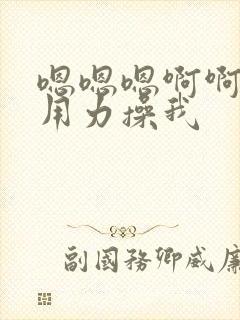 嗯嗯嗯啊啊
用力操我
副國務卿威廉